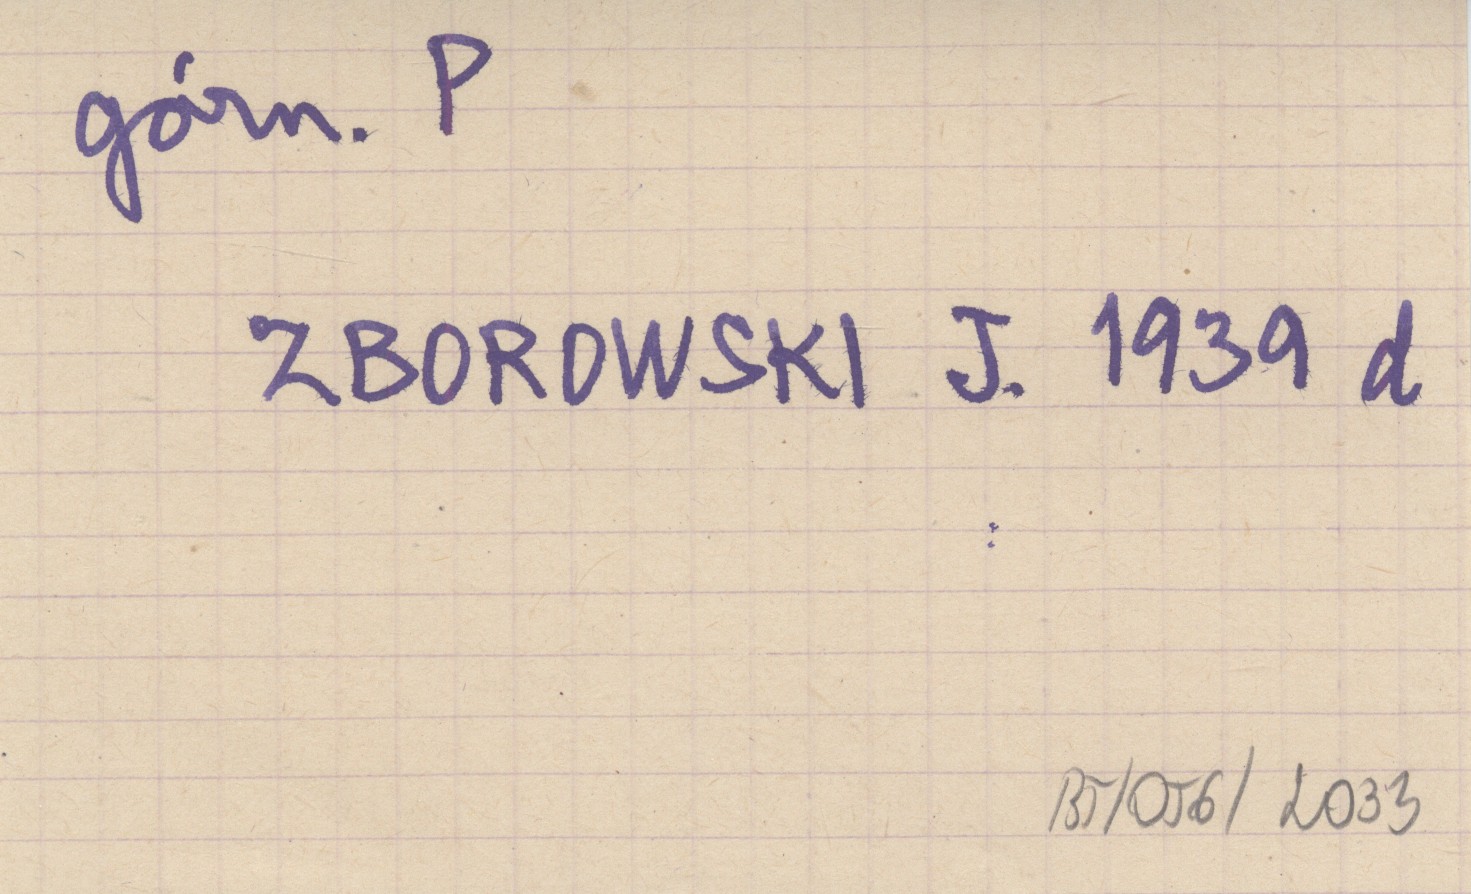 górn. P
ZBOROWSKI J. 1939 d
BJ/OJG/2033